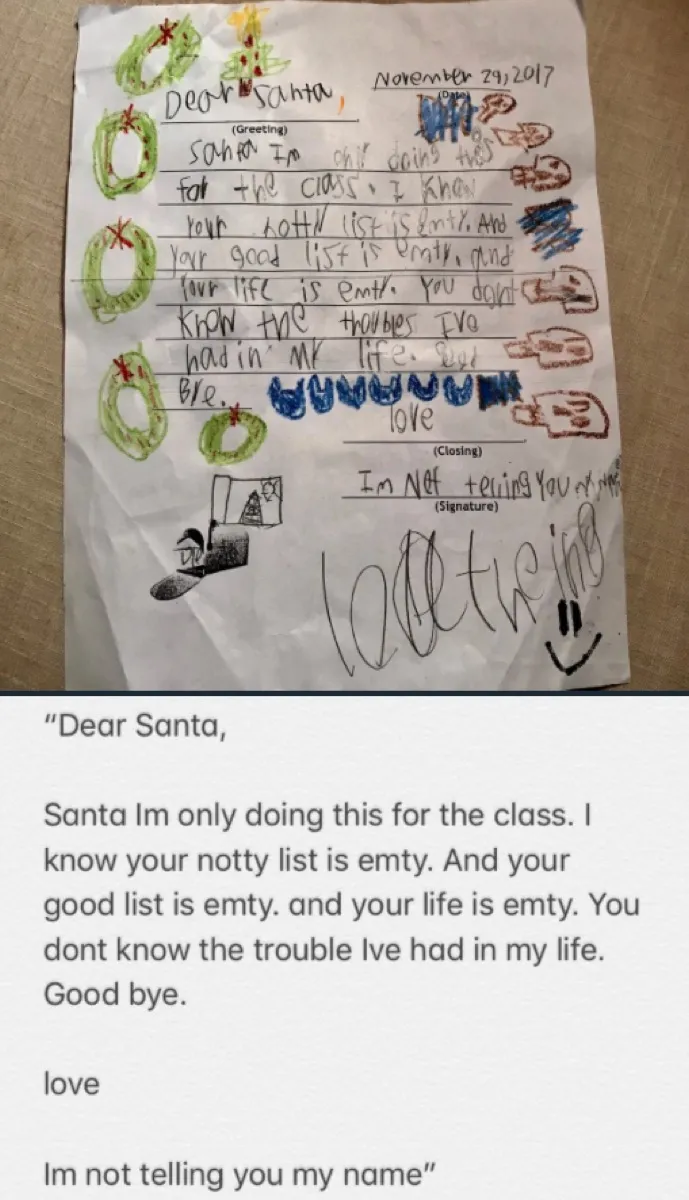 November 29, 2017
(Date)
Dear Santa,
(Greeting)
Santa Im only doing this
for the class. I know
Your notty list is emty. And
Your good list is emty. and
Your life is emty. You dont
know the troubles Ive
had in my life. Good
Bye.
love
(Closing)
Im Not telling You
(Signature)
“Dear Santa,
Santa Im only doing this for the class. I
know your notty list is emty. And your
good list is emty. and your life is emty. You
dont know the trouble Ive had in my life.
Good bye.
love
Im not telling you my name”